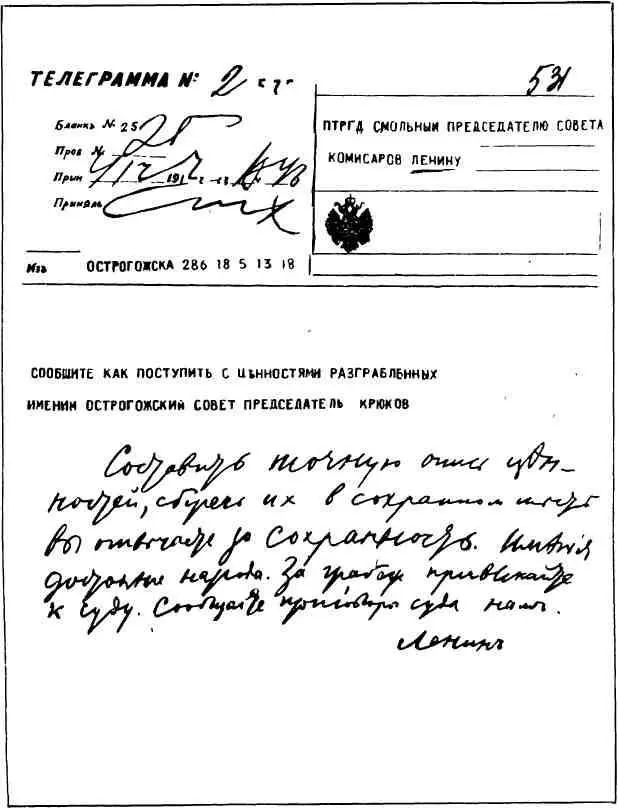 ТЕЛЕГРАММА №
531
Бланкъ № 25 25
Пров №
Прин 191
Принялъ
ПТРГД СМОЛЬНЫЙ ПРЕДСЕДАТЕЛЮ СОВЕТА
КОМИСАРОВ ЛЕНИНУ
Изъ ОСТРОГОЖСКА 286 18 5 13 18
СООБЩИТЕ КАК ПОСТУПИТЬ С ЦЬННОСТЯМИ РАЗГРАБЛЕННЫХ
ИМЕНИИ ОСТРОГОЖСКИЙ СОВЕТ ПРЕДСЕДАТЕЛЬ КРЮКОВ
Составить точную опись цѣн-
ностей, сберечь их в сохранном месте
вы отвечаете за сохранность. Имѣния
достояние народа. За грабеж привлекайте
к суду. Сообщайте приговоры суда нам.
Ленинъ